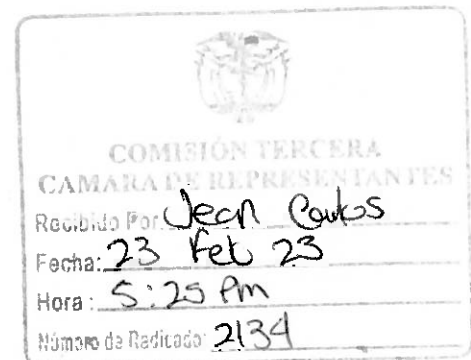 COMISIÓN TERCERA
CAMARA DE REPRESENTANTES
Recibido Por: Jean Carlos
Fecha: 23 Feb 23
Hora: 5:25 Pm
Número de Radicado: 2134